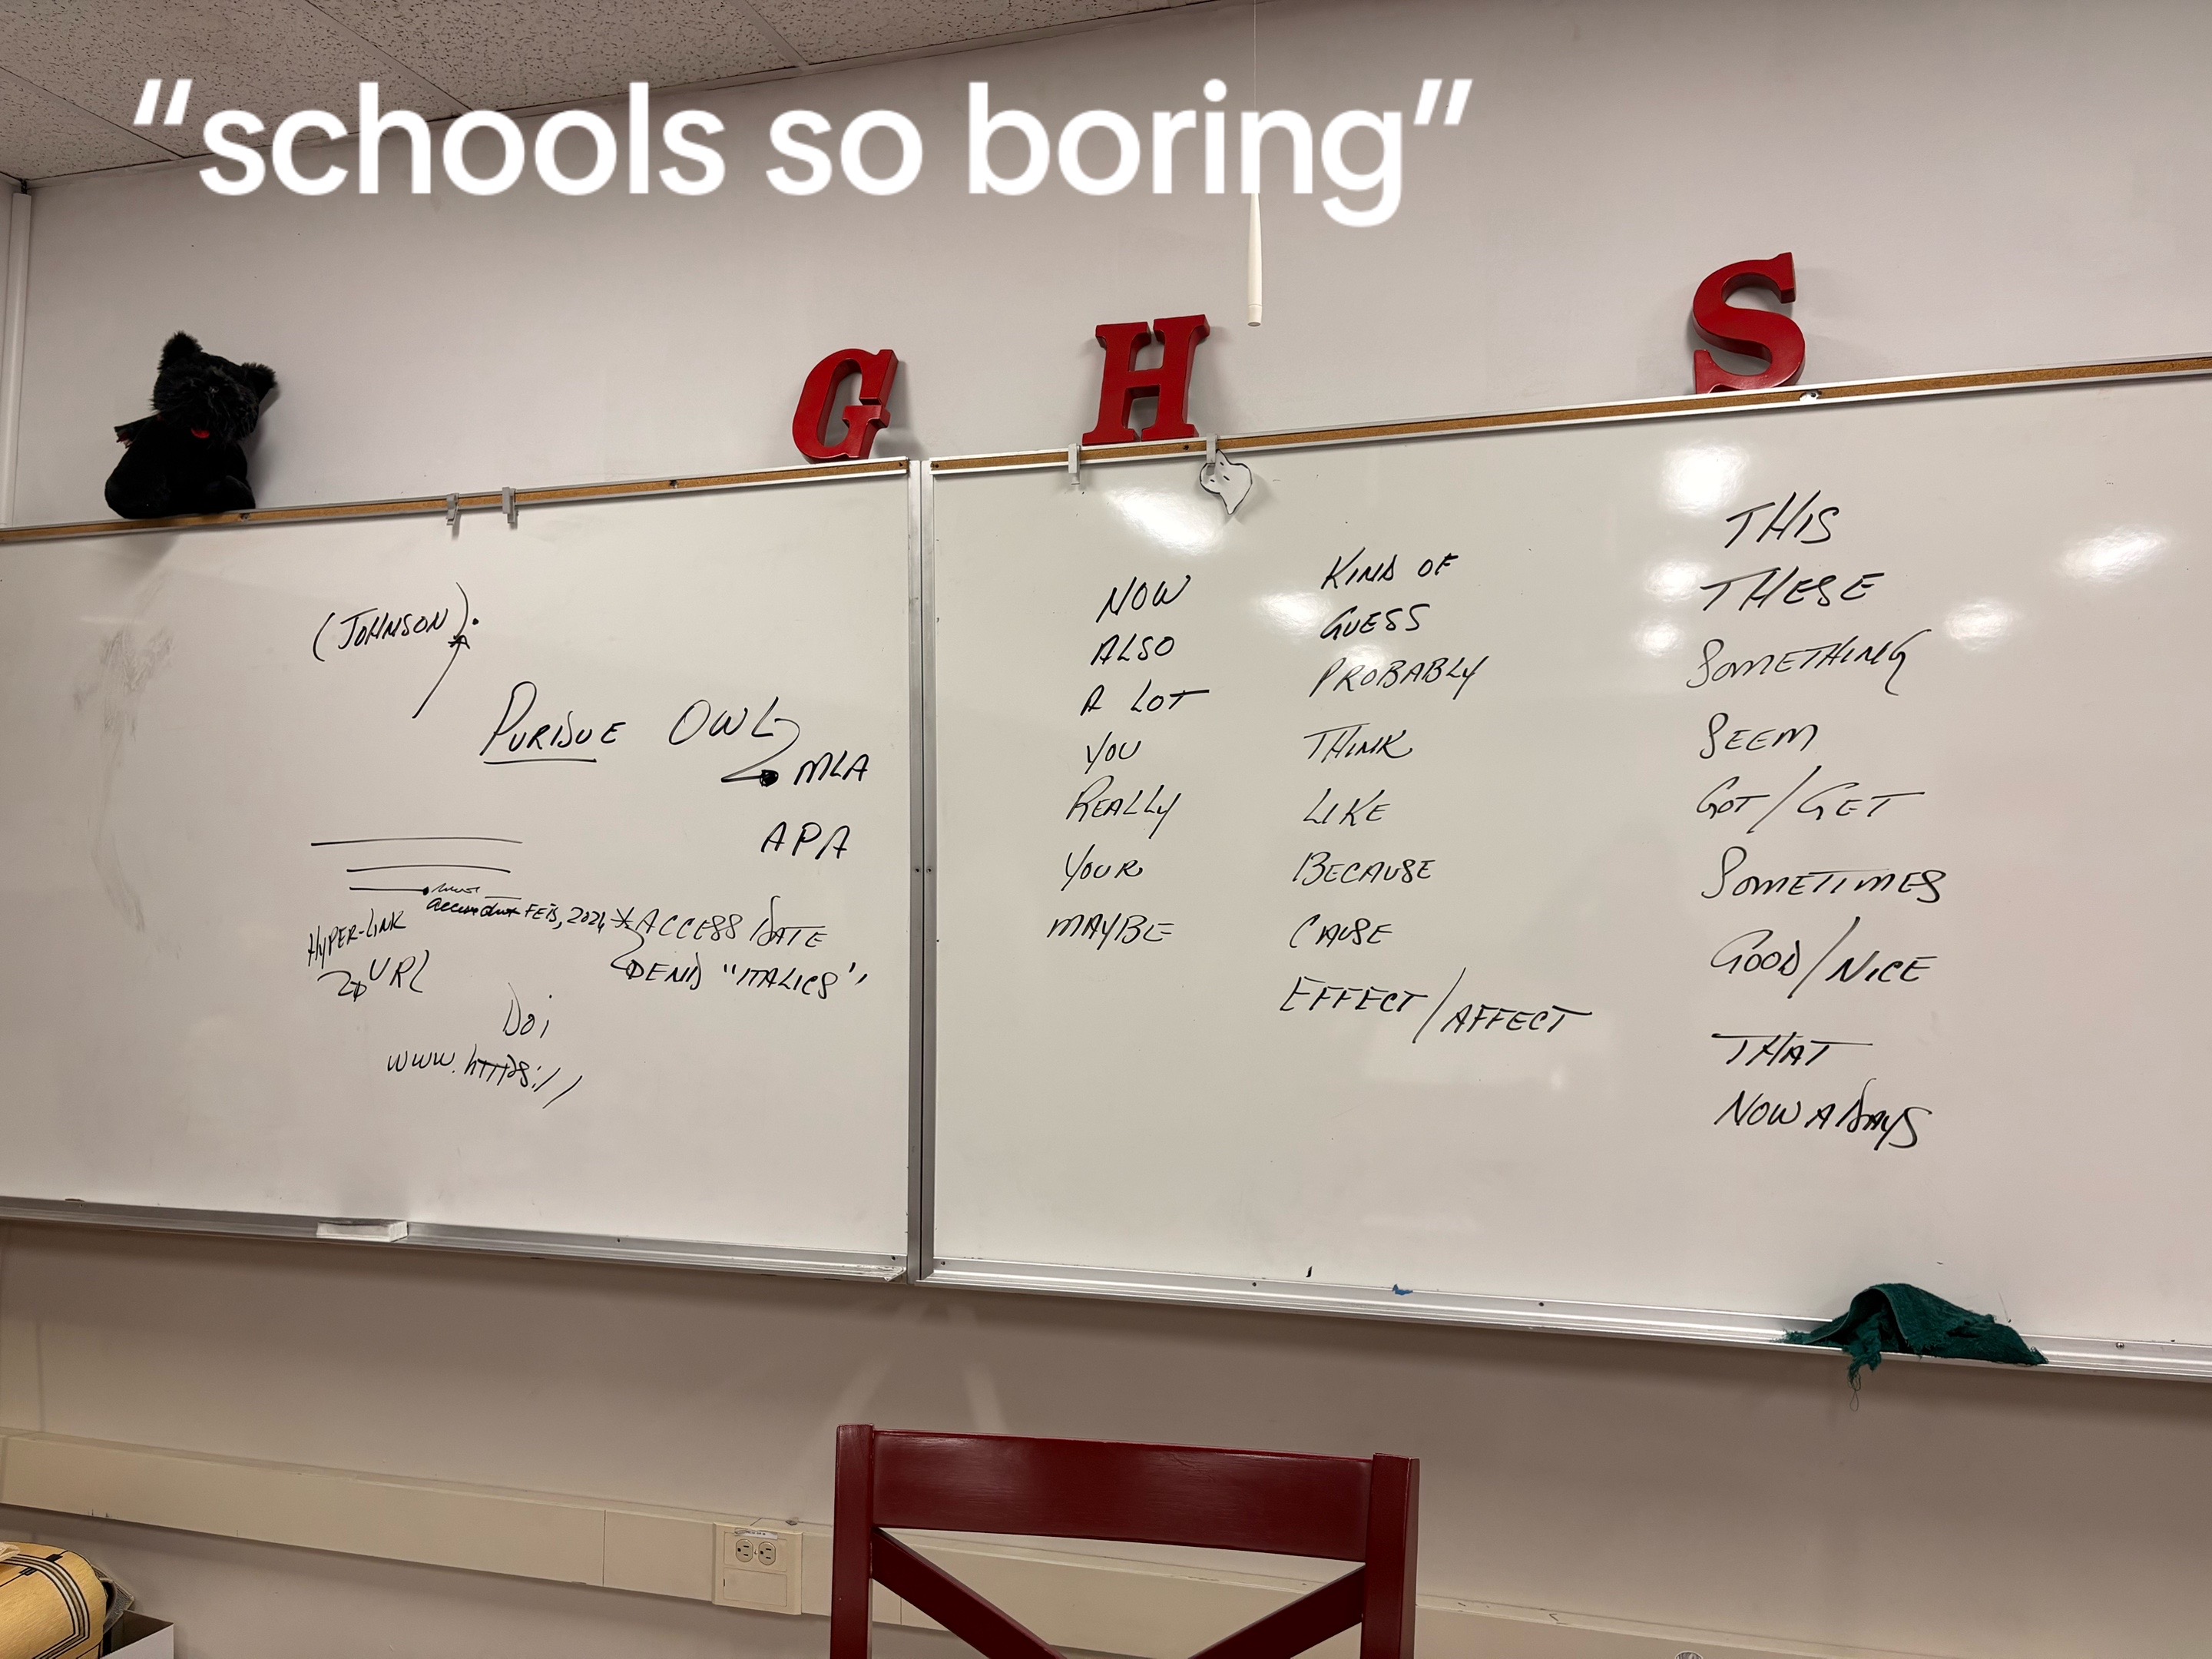 “schools so boring”
G H S
(JOHNSON).
PURDUE OWL
MLA
APA
FEB, 2024 * ACCESS DATE
HYPER-LINK
URL
END "ITALICS"
DOi
www.https://
NOW
ALSO
A LOT
YOU
REALLY
YOUR
MAYBE
KIND OF
GUESS
PROBABLY
THINK
LIKE
BECAUSE
CAUSE
EFFECT/AFFECT
THIS
THESE
SOMETHING
SEEM
GOT/GET
SOMETIMES
GOOD/NICE
THAT
NOW A DAYS